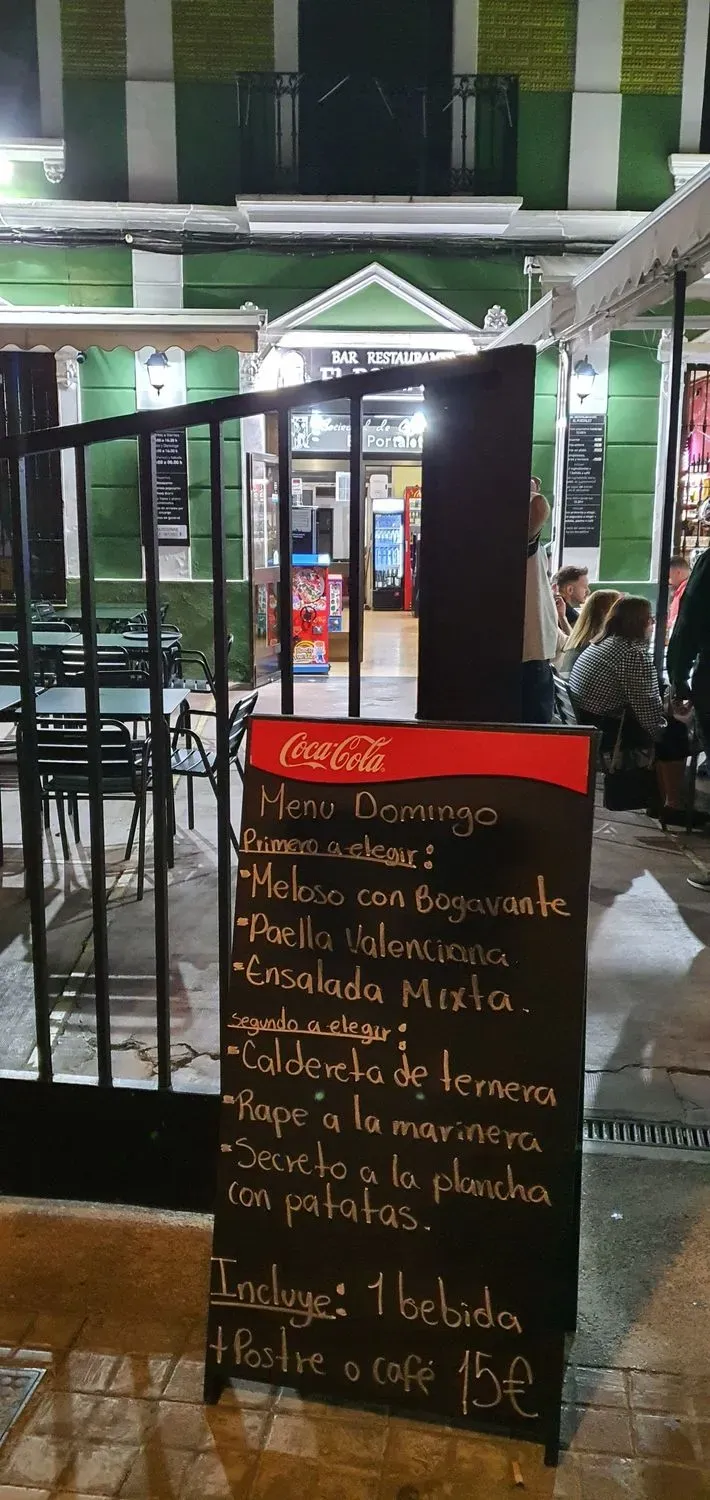 BAR RESTAURANTE
Sociedad de
El Portalet
Coca-Cola
Menu Domingo
Primero a elegir:
-Meloso con Bogavante
-Paella Valenciana.
-Ensalada Mixta.
segundo a elegir:
-Caldereta de ternera
-Rape a la marinera
-Secreto a la plancha
con patatas.
Incluye: 1 bebida
+Postre o café 15€